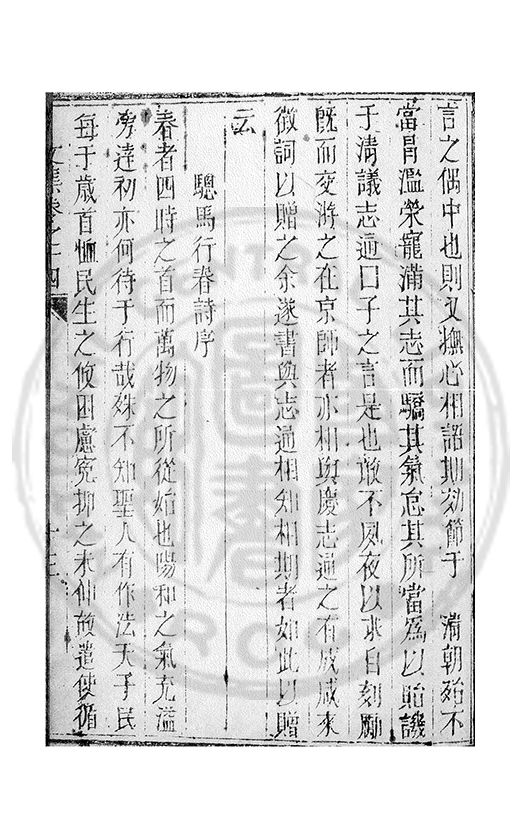 言之偶中也則又撫心相語期効節于 清朝殆不
當冐濫榮寵滿其志而驕其氣怠其所當爲以貽譏
于清議志通曰子之言是也敢不夙夜以求自刻勵
既而交游之在京師者亦相與慶志通之有成咸來
徵詞以贈之余遂書與志通相知相期者如此以贈
云
驄馬行春詩序
春者四時之首而萬物之所從始也陽和之氣充溢
旁達初亦何待于行哉殊不知聖人有作法天子民
每于歲首恤民生之攸困慮寃抑之未伸故遣使循
文集卷之十四
十三